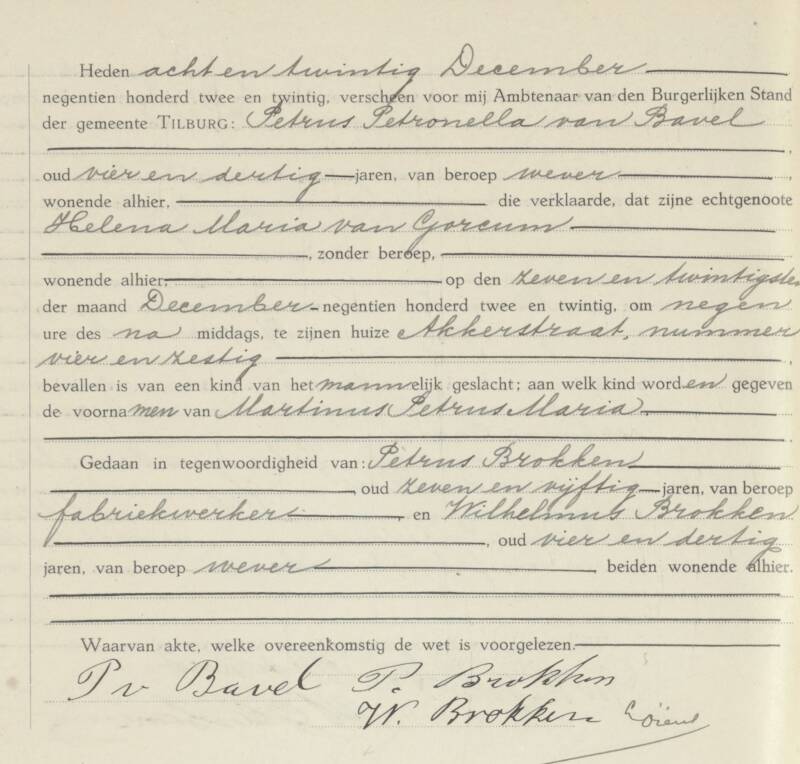 Heden acht en twintig December
negentien honderd twee en twintig, verscheen voor mij Ambtenaar van den Burgerlijken Stand
der gemeente TILBURG: Petrus Petronella van Bavel
oud vier en dertig jaren, van beroep wever,
wonende alhier, die verklaarde, dat zijne echtgenoote
Helena Maria van Gorcum
, zonder beroep,
wonende alhier, op den zeven en twintigsten
der maand December negentien honderd twee en twintig, om negen
ure des na middags, te zijnen huize Akkerstraat, nummer
vier en zestig,
bevallen is van een kind van het mannelijk geslacht; aan welk kind worden gegeven
de voornamen van Martinus Petrus Maria.
Gedaan in tegenwoordigheid van: Petrus Brokken
, oud zeven en vijftig jaren, van beroep
fabriekwerkers, en Wilhelmus Brokken
, oud vier en dertig
jaren, van beroep wevers, beiden wonende alhier.
Waarvan akte, welke overeenkomstig de wet is voorgelezen.
P v Bavel P. Brokken
W. Brokken